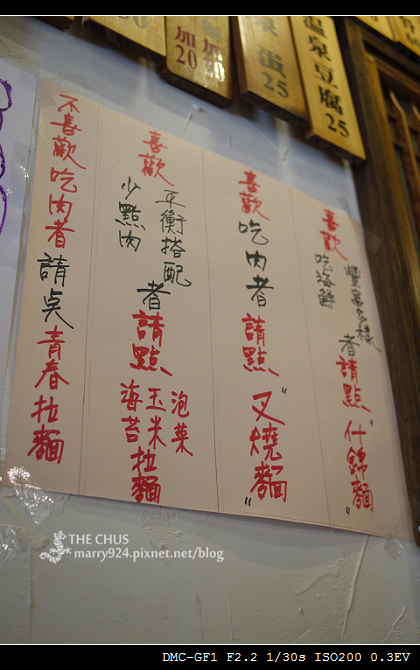 加20
加20
溫泉蛋25
溫泉豆腐25
喜歡
豐富多樣
吃海鮮
者請點"什錦麵"
喜歡吃肉者請點"叉燒麵"
喜歡
平衡搭配
少點肉
者請點
泡菜
玉米
海苔
拉麵
不喜歡吃肉者請点青春拉麵
THE CHUS
marry924.pixnet.net/blog
DMC-GF1 F2.2 1/30s ISO200 0.3EV